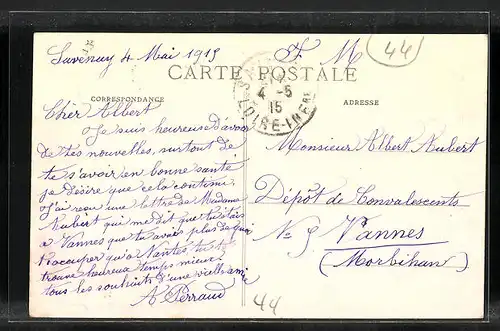 Savenay 4 Mai 1915
F. M
44
CARTE POSTALE
CORRESPONDANCE
ADRESSE
4-5
15
LOIRE-INFRE
Cher Albert
Je suis heureuse d'avoir
de tes nouvelles, surtout de
te s'avoir en bonne santé
je désire que cela continu.
J'ai reçu une lettre de Madame
Aubert qui me dit que tu étais
a Vannes que tu avais plus de quoi
t'occuper qu'a Nantes,
trouve heureux temps mieux.
tous les souhaits d'une vieille amie
A Perraud
Monsieur Albert Aubert
Dépôt de Convalescents
No 5 Vannes
(Morbihan)
44